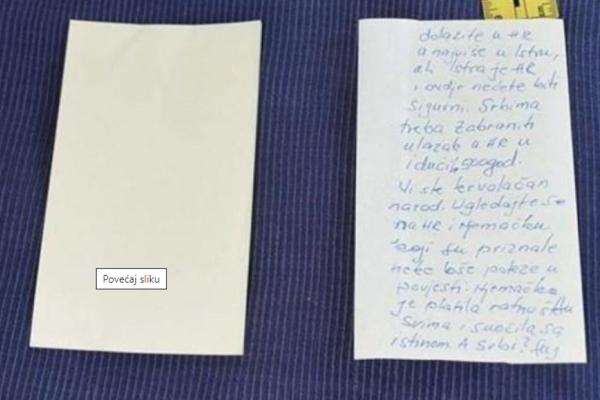 dolazite u HR
a najviše u Istru,
ali Istra je HR
i ovdje nećete biti
sigurni. Srbima
treba zabraniti
ulazak u HR u
idućih 500 god.
Vi ste krvoločan
narod. Ugledajte se
na HR i Njemačku
koji su priznale
neke loše poteze u
povjesti. Njemačka
je platila ratnu štetu
svima i suočila sa
istinom. A Srbi? Fuj
Povećaj sliku